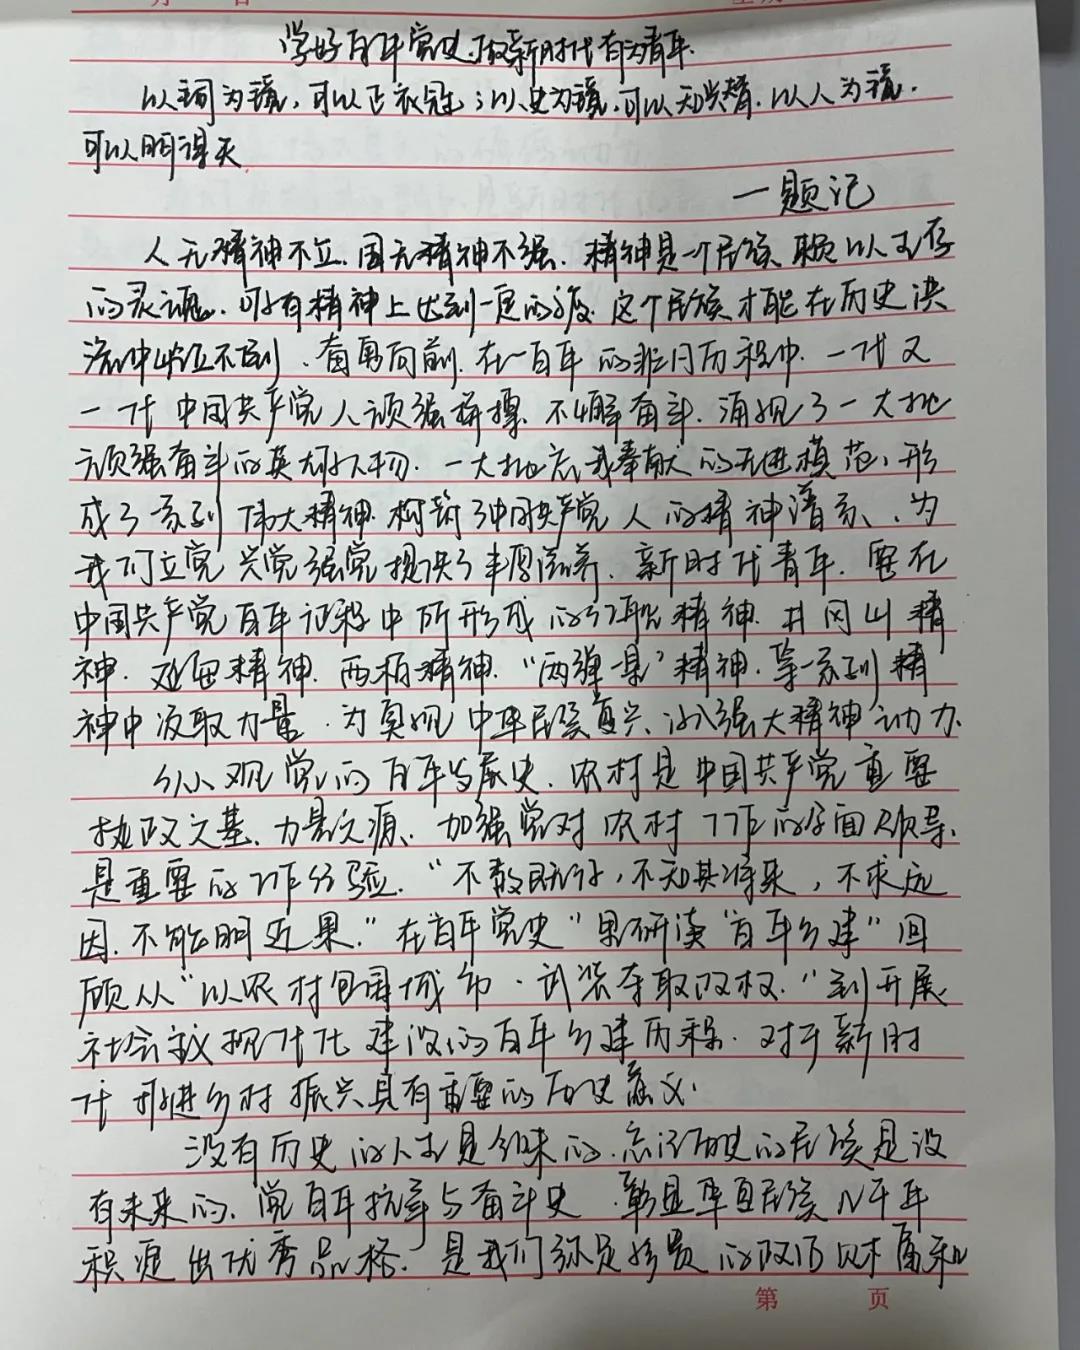 学好百年党史,做新时代有为青年.
以铜为镜,可以正衣冠;以史为镜,可以知兴替.以人为镜.
可以明得失.
一题记
人无精神不立.国无精神不强.精神是一个民族赖以生存
的灵魂.只有精神上达到一定的高度.这个民族才能在历史洪
流中屹立不倒.奋勇向前.在一百年的非凡历程中.一代又
一代中国共产党人顽强拼搏.不懈奋斗.涌现了一大批
顽强奋斗的英雄人物.一大批忘我奉献的先进模范,形
成了一系列伟大精神.构筑了中国共产党人的精神谱系.为
我们立党兴党强党提供了丰厚滋养.新时代青年.要在
中国共产党百年征程中所形成的红船精神.井冈山精
神.延安精神.西柏坡精神."两弹一星"精神.等一系列精
神中汲取力量.为实现中华民族复兴注入强大精神动力.
纵观党的百年发展史.农村是中国共产党重要
执政之基、力量之源.加强党对农村工作的全面领导.
是重要的工作经验."不数既往,不知其将来,不求远
因.不能明近果."在百年党史"里研读"百年乡建"回
顾从"以农村包围城市.武装夺取政权."到开展
社会主义现代化建设的百年乡建历程.对于新时
代推进乡村振兴具有重要的历史意义.
没有历史的人生是乏味的.忘记历史的民族是没
有未来的.党百年抗争与奋斗史.彰显华夏民族几千年
积淀出优秀品格.是我们弥足珍贵的政治财富和
第 页